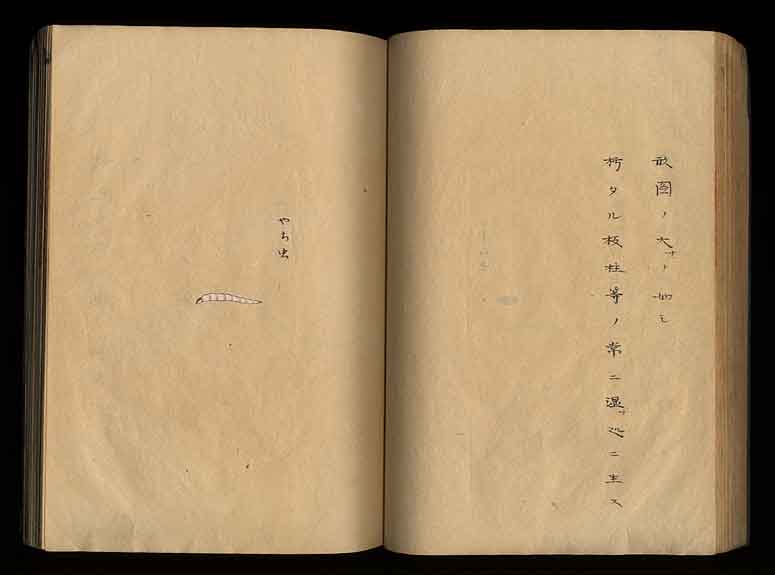 圖ノ大サノ如シ
朽タル板柱等ノ常ニ湿ナ処ニ生ス
やち虫